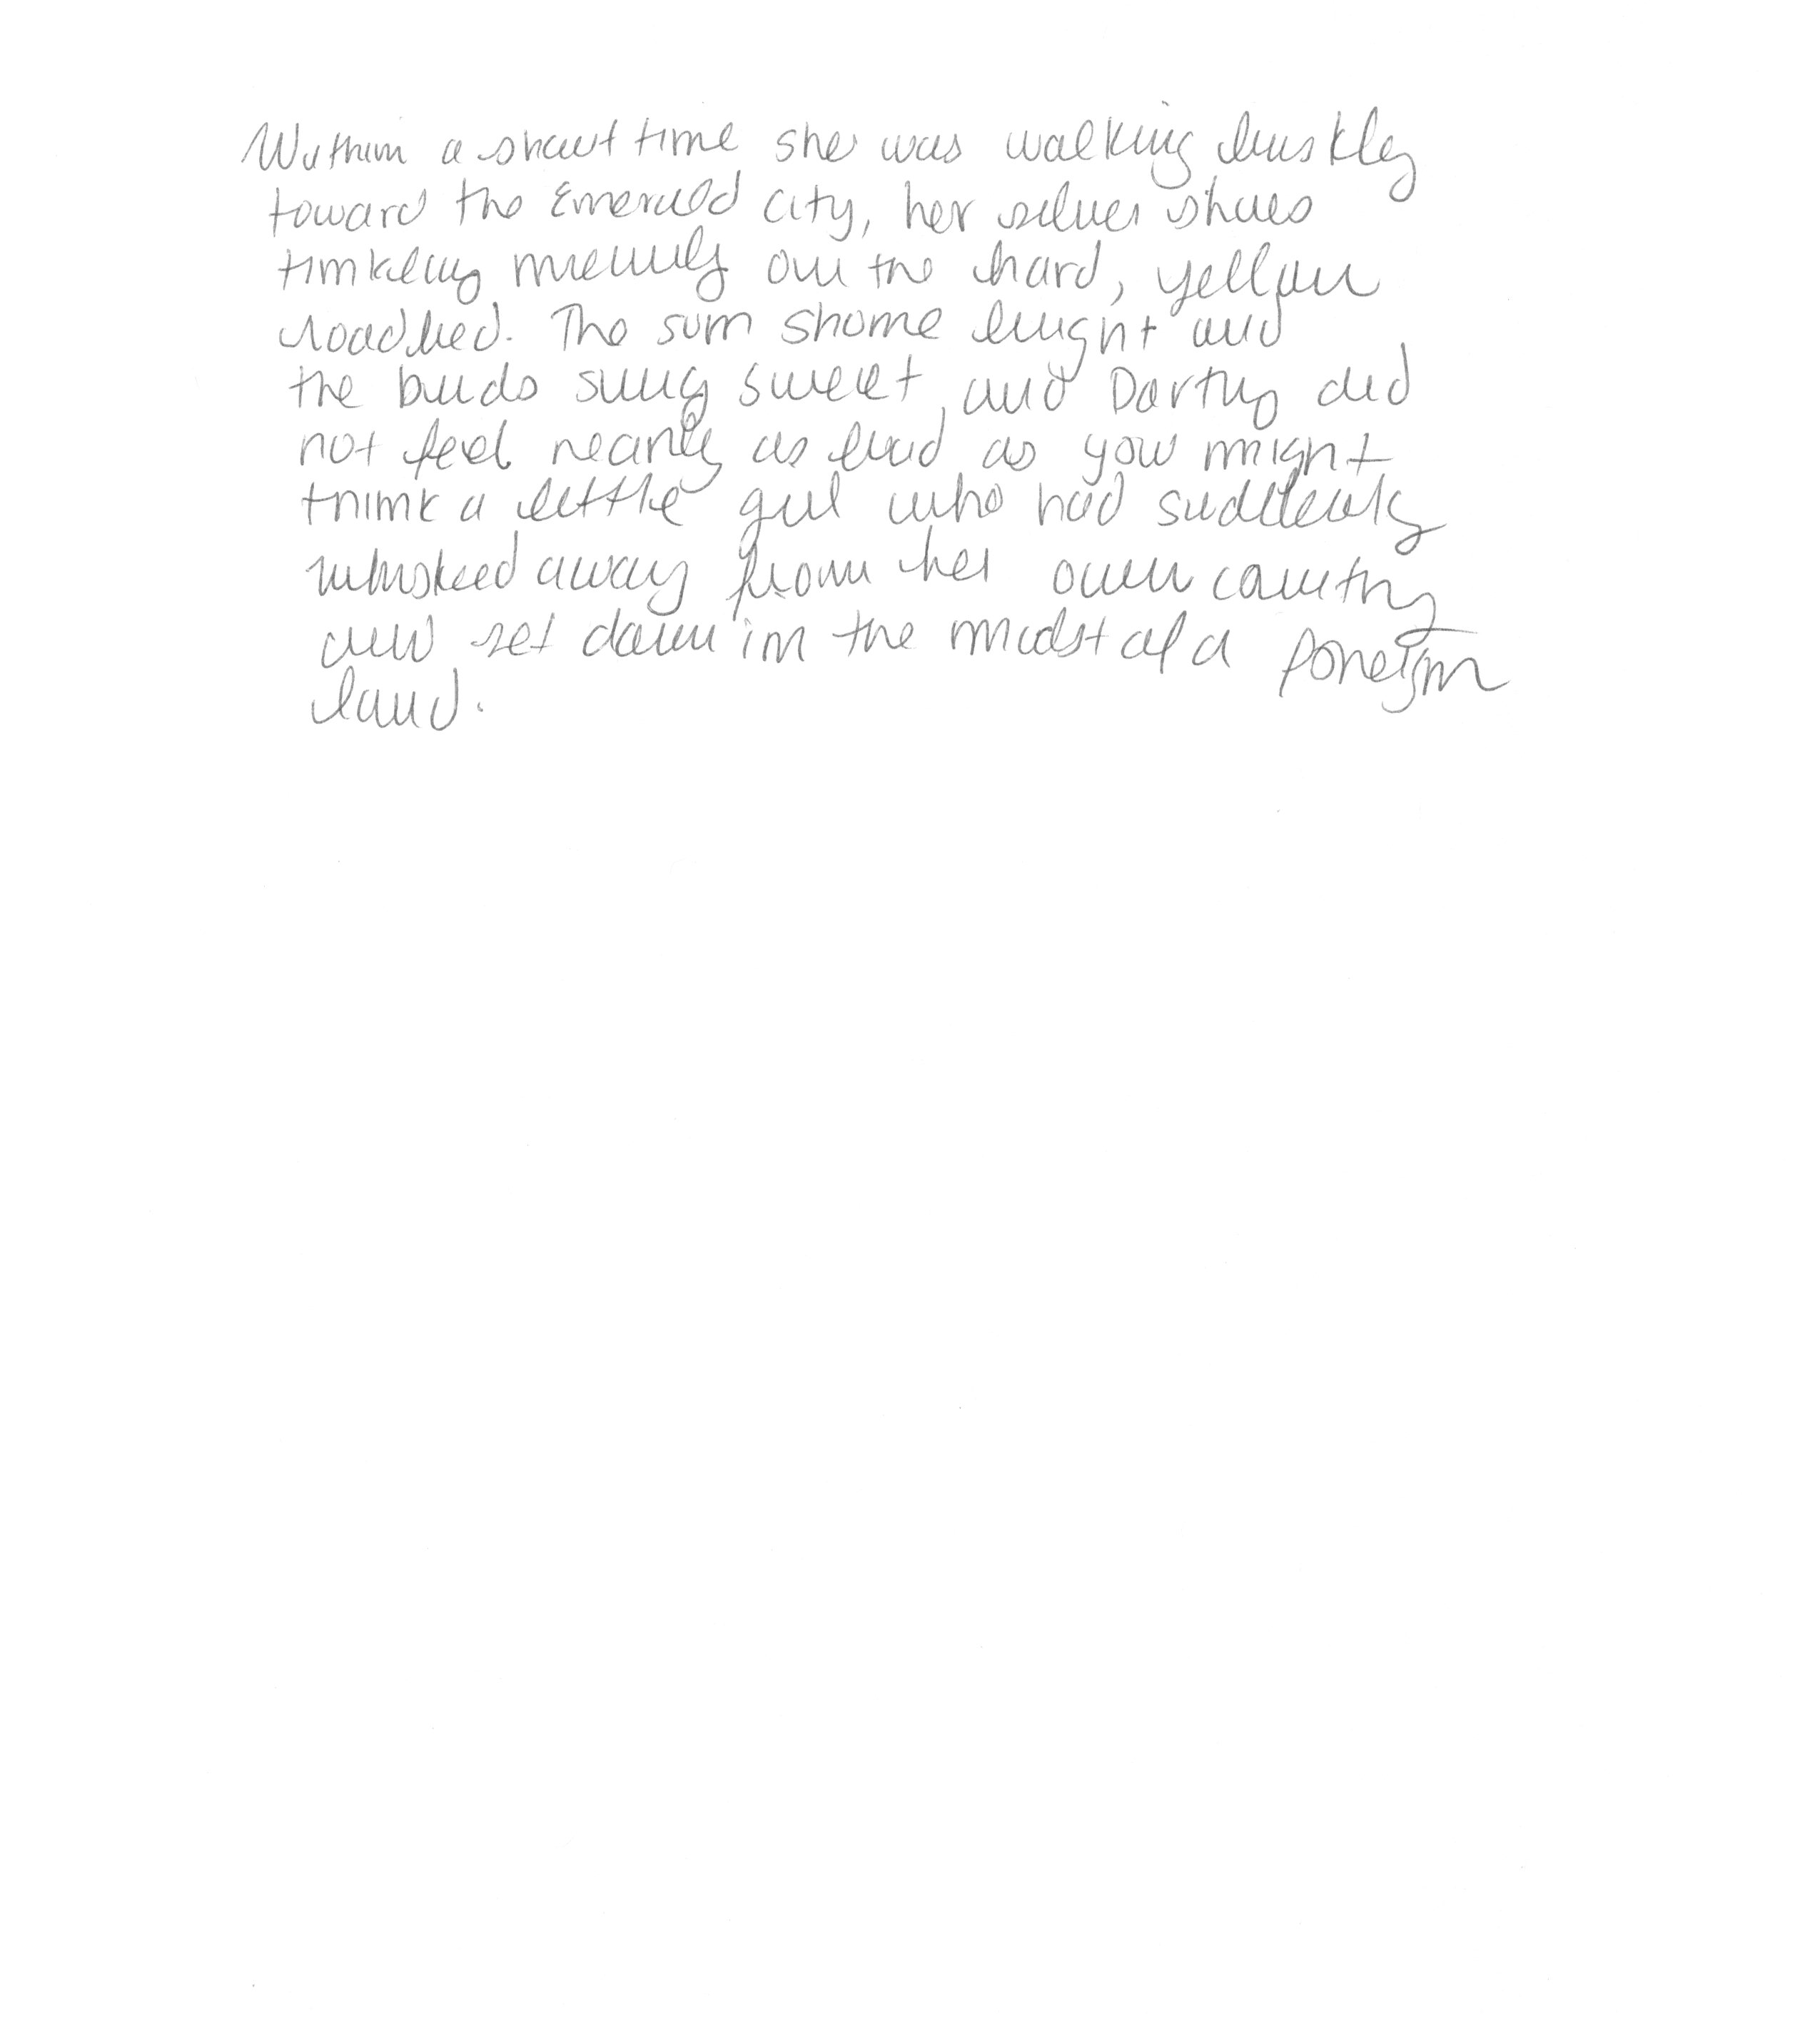 Within a short time she was walking briskly
toward the Emerald City, her silver shoes
tinkling merrily on the hard, yellow
roadbed. The sun shone bright and
the birds sung sweet, and Dorthy did
not feel nearly as bad as you might
think a little girl who had suddenly
whisked away from her own country
and set down in the midst of a foreign
land.